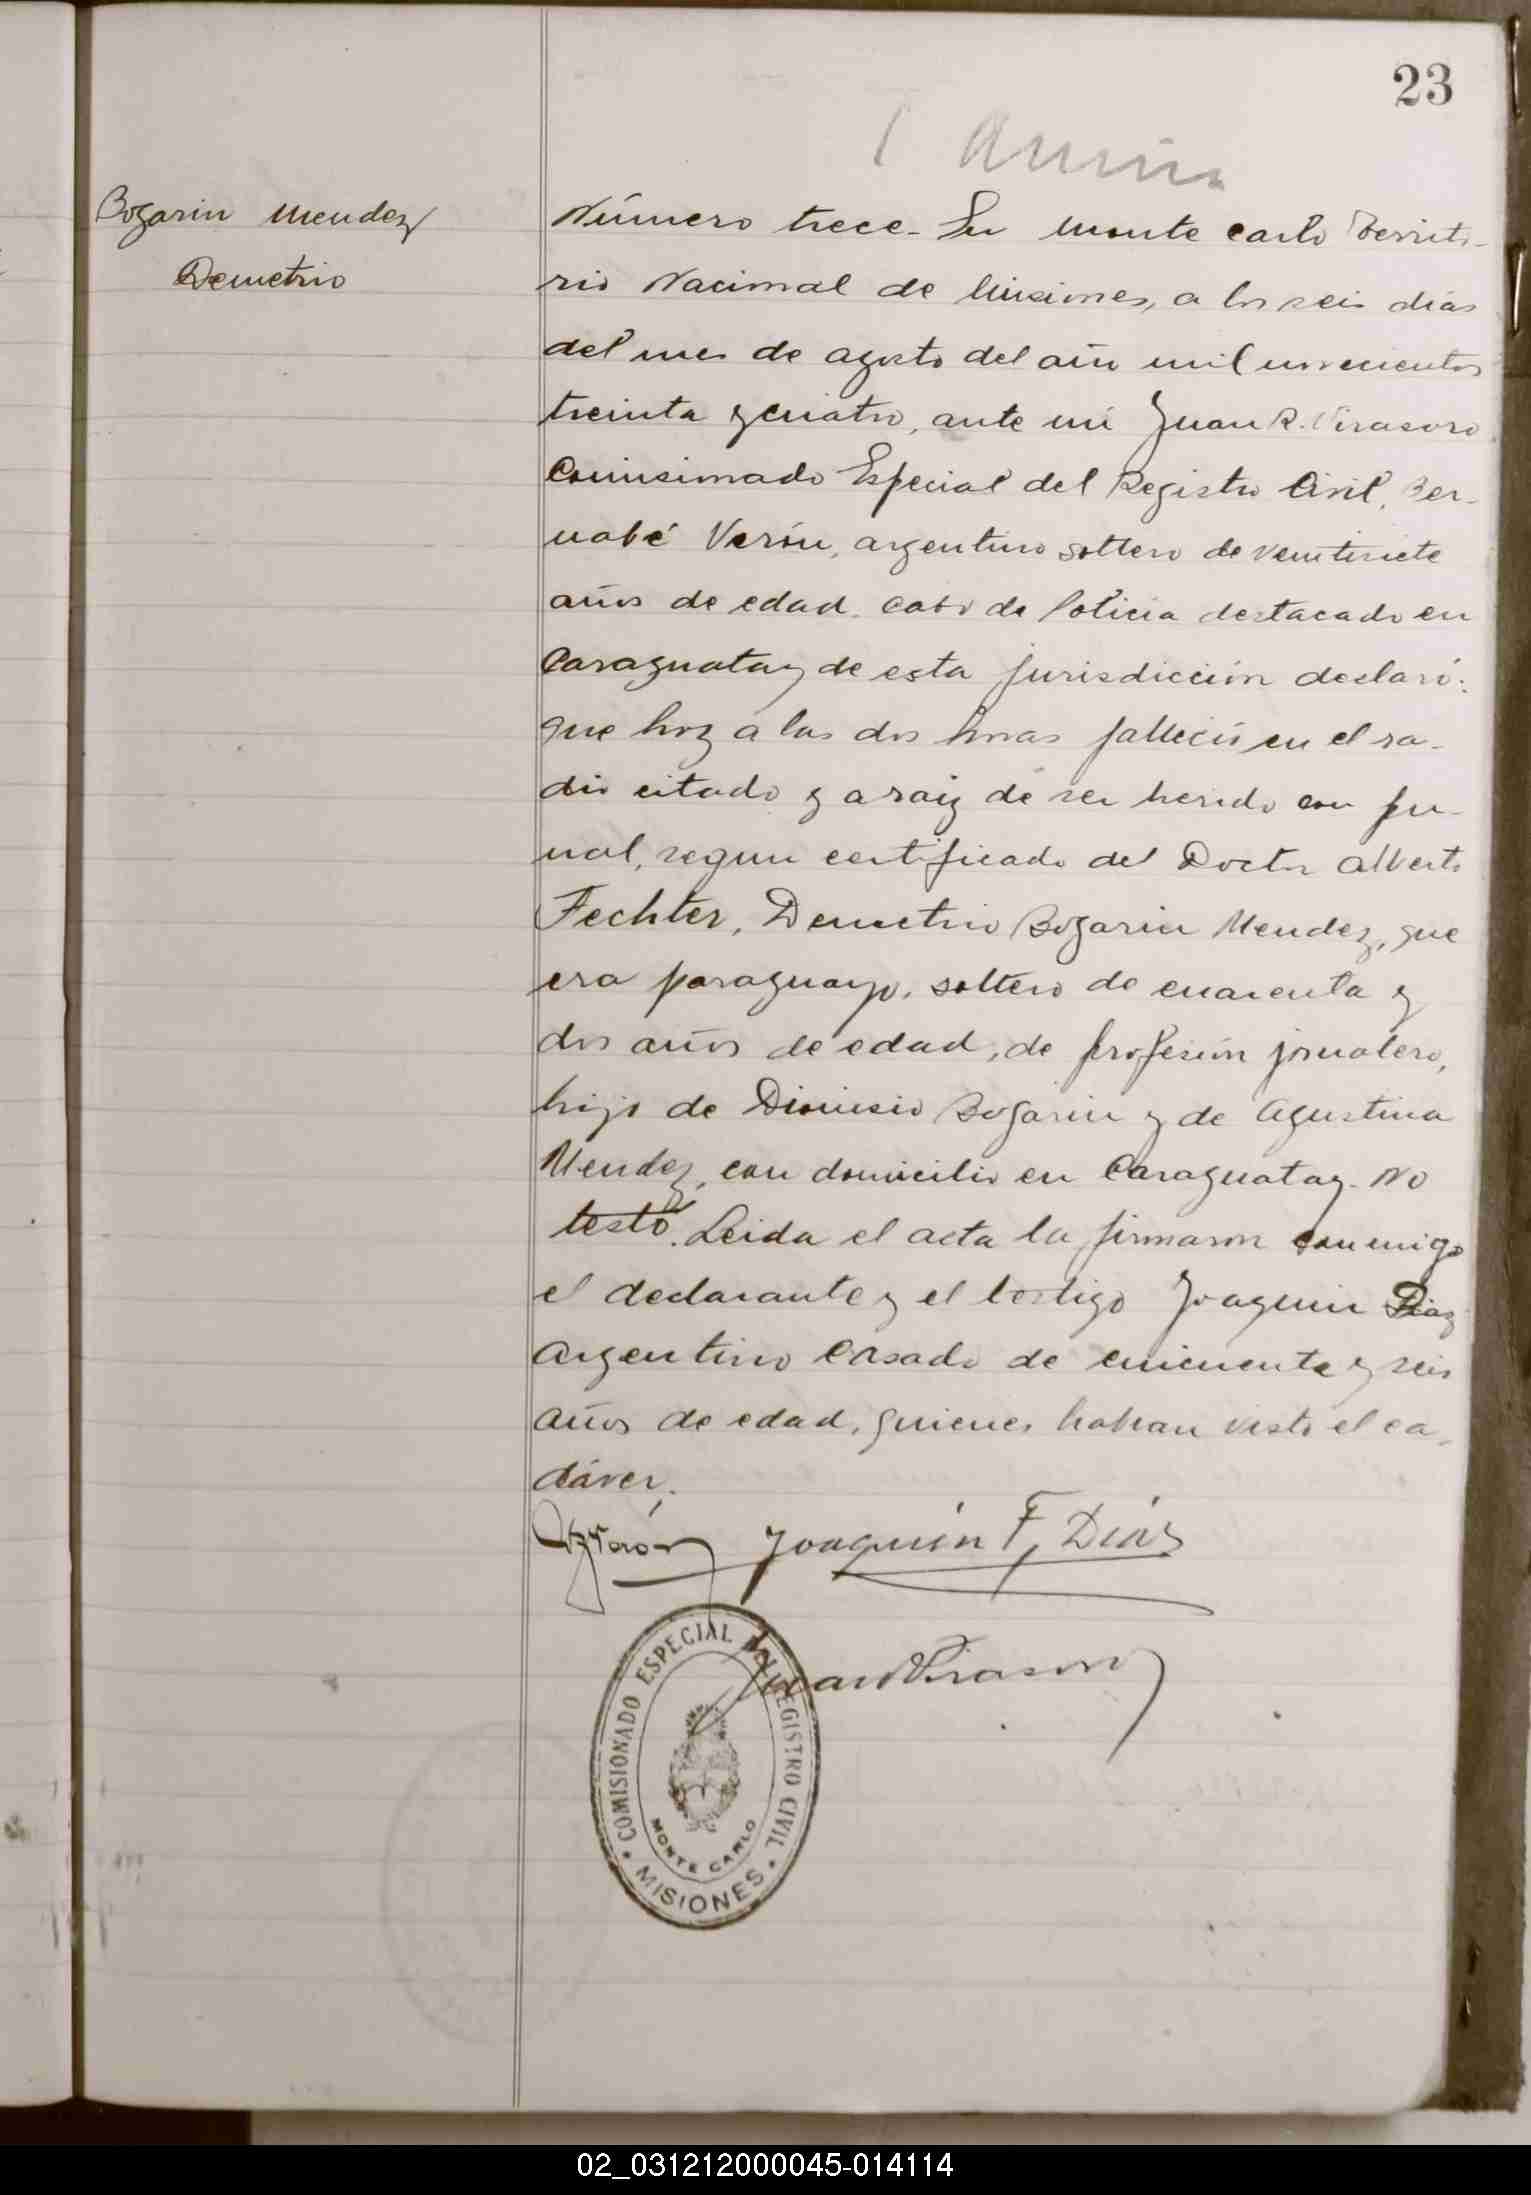 23
Bogarin Mendez
Demetrio
Número trece. En Monte Carlo Territo-
rio Nacional de Misiones, a los seis días
del mes de agosto del año mil novecientos
treinta y cuatro, ante mi Juan R. Virasoro
Comisionado Especial del Registro Civil, Ber-
nabé Verón, argentino soltero de veintisiete
años de edad. cabo de Policia destacado en
Caraguatay de esta jurisdicción declaró:
que hoy a las dos horas falleció en el ra-
dio citado y a raiz de ser herido con pu-
ñal, segun certificado del Doctor Alberto
Fechter, Demetrio Bogarin Mendez, que
era paraguayo, soltero de cuarenta y
dos años de edad, de profesión jornalero,
hijo de Dionisio Bogarin y de Agustina
Mendez, con domicilio en Caraguatay. No
testó. Leida el acta la firmaron conmigo
el declarante y el testigo Joaquin Diaz
argentino casado de cincuenta y seis
años de edad, quienes habian visto el ca-
dáver.
Verón Joaquín F. Diáz
Juan R Virasoro
COMISIONADO ESPECIAL DEL REGISTRO CIVIL
MONTE CARLO
MISIONES
02_031212000045-014114